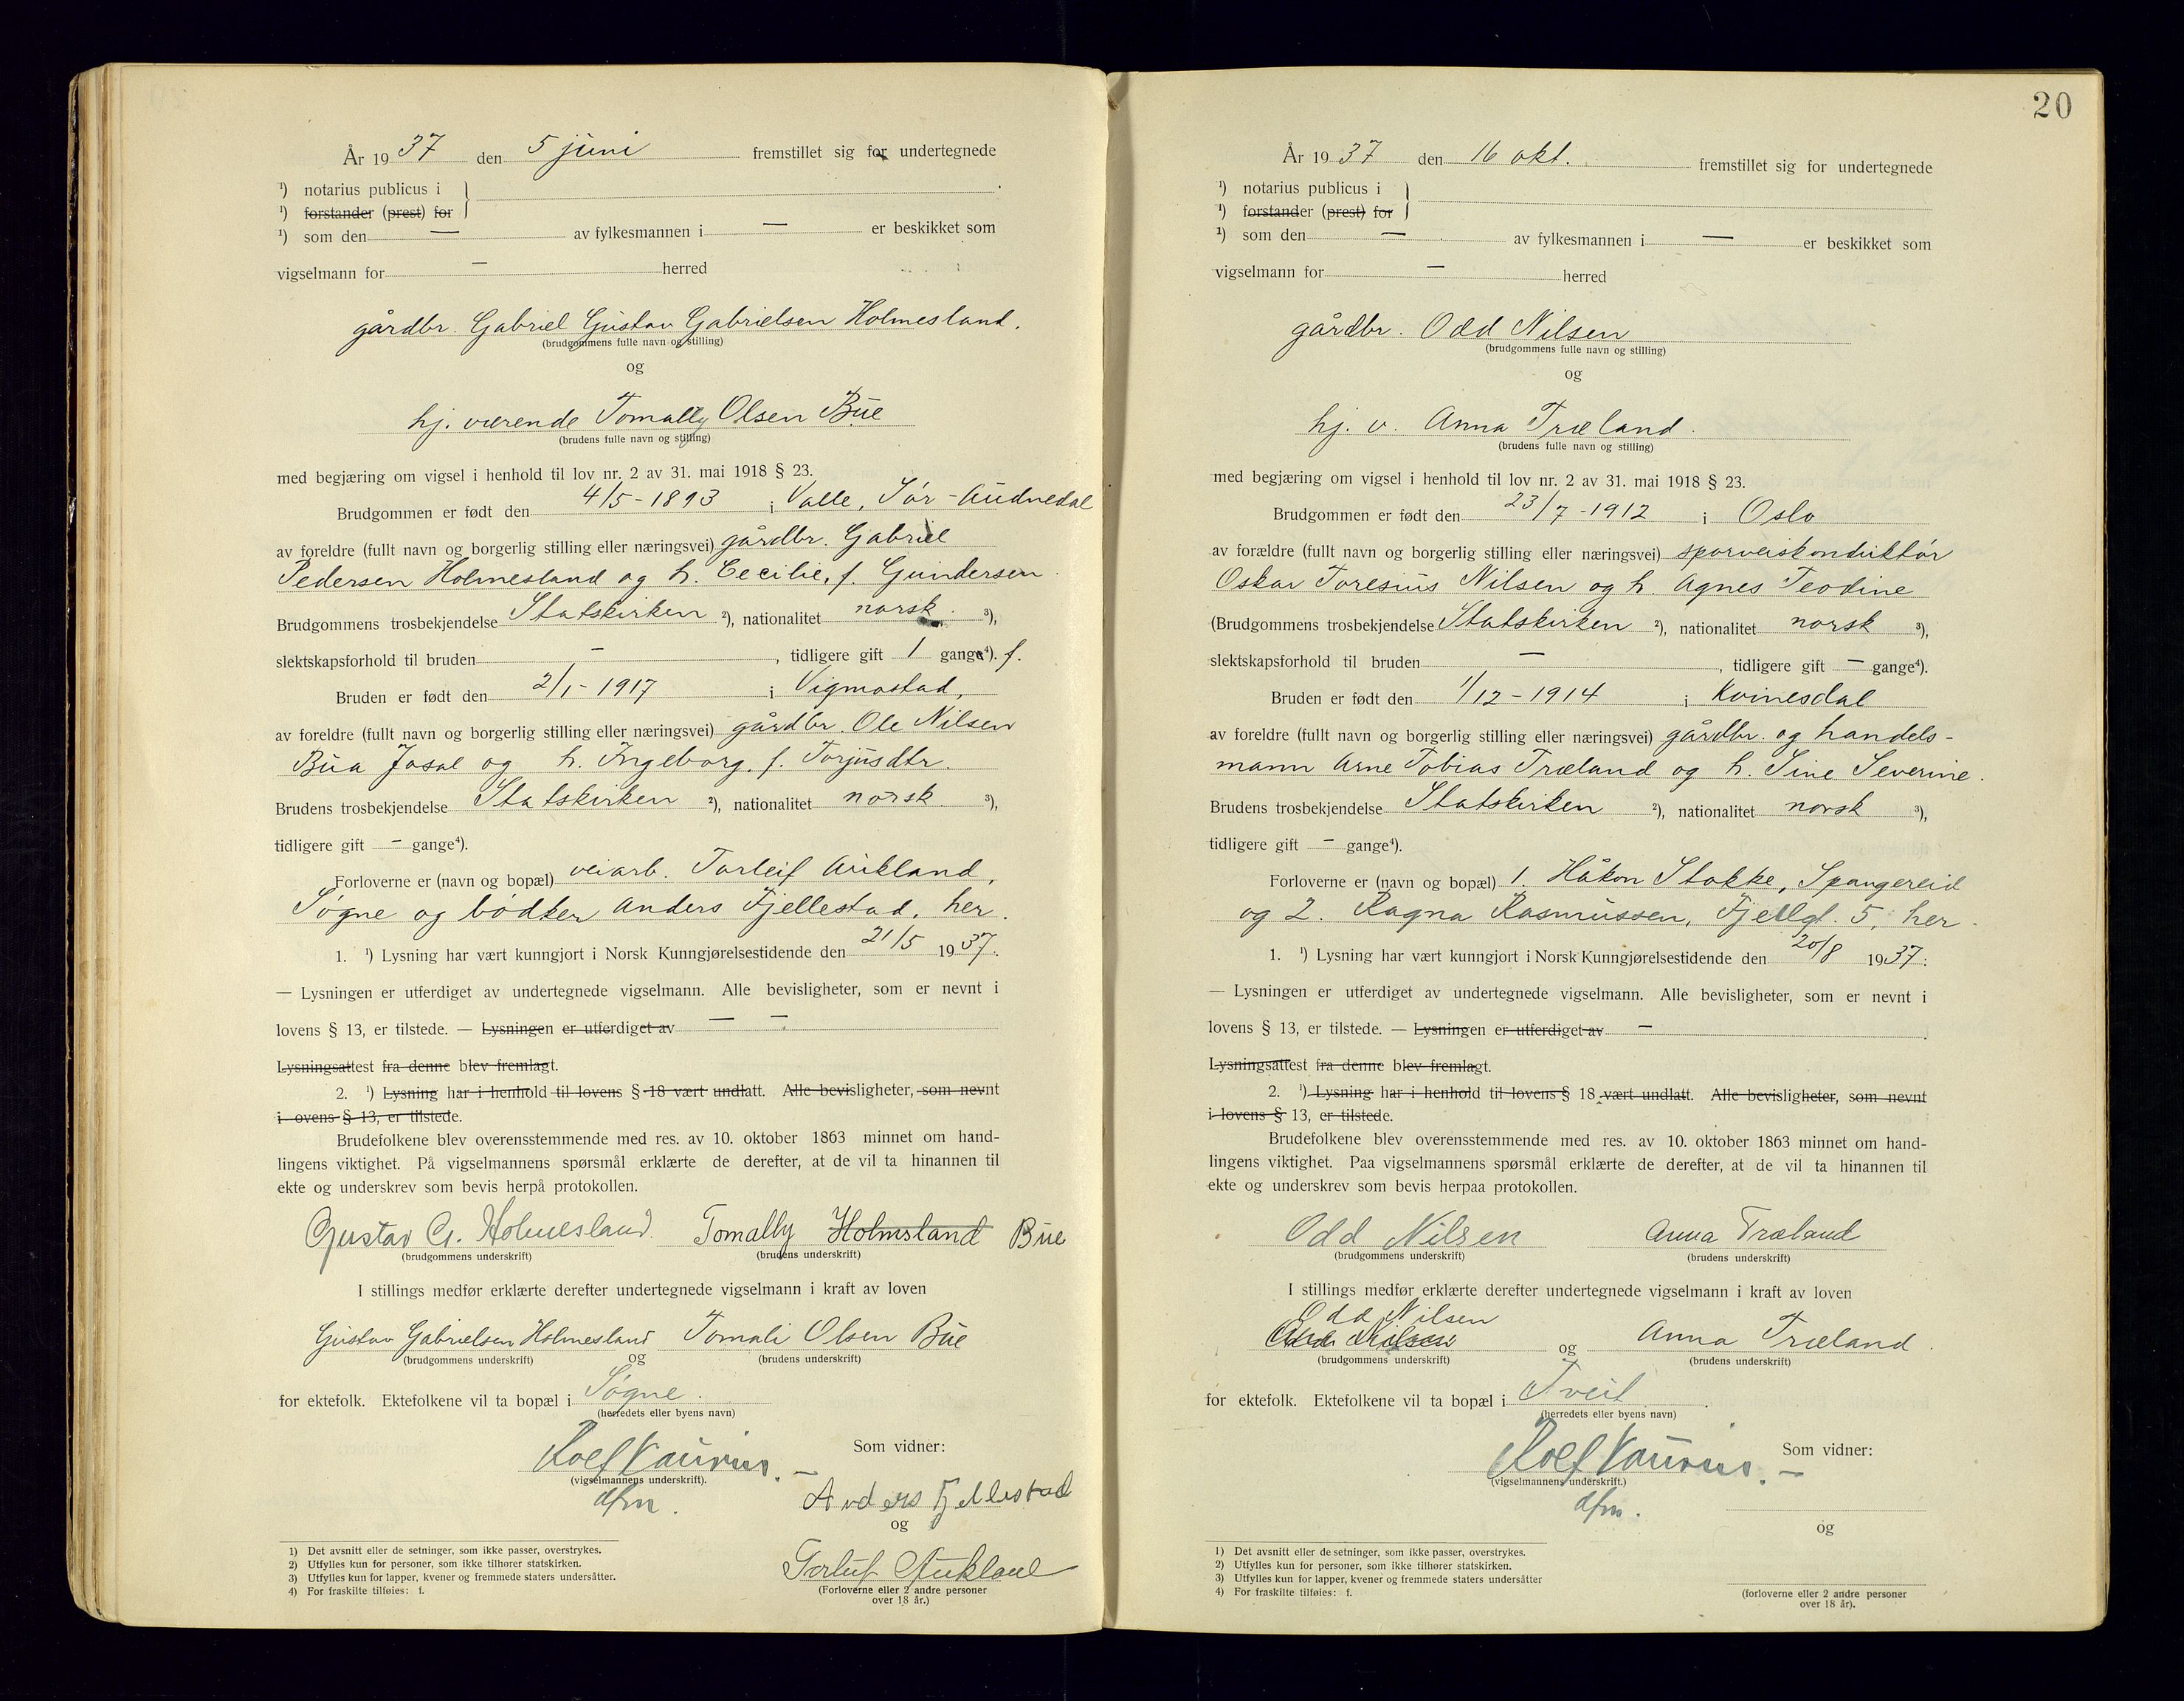 År 1937 den 5 juni fremstillet sig for undertegnede
¹) notarius publicus i
¹) forstander (prest) for
¹) som den — av fylkesmannen i — er beskikket som
vigselmann for — herred
gårdbr. Gabriel Gustav Gabrielsen Holmesland.
(brudgommens fulle navn og stilling)
og
hj. værende Tomally Olsen Bue
(brudens fulle navn og stilling)
med begjæring om vigsel i henhold til lov nr. 2 av 31. mai 1918 § 23.
Brudgommen er født den 4/5-1893 i Valle, Sør-Audnedal
av foreldre (fullt navn og borgerlig stilling eller næringsvei) gårdbr. Gabriel
Pedersen Holmesland og h. Cecilie, f. Gundersen.
Brudgommens trosbekjendelse Statskirken ²), nationalitet norsk. ³),
slektskapsforhold til bruden —, tidligere gift 1 gange⁴). f.
Bruden er født den 2/1-1917 i Vigmostad,
av foreldre (fullt navn og borgerlig stilling eller næringsvei) gårdbr. Ole Nilsen
Bua Josal og h. Ingeborg, f. Torjusdtr.
Brudens trosbekjendelse Statskirken ²), nationalitet norsk. ³),
tidligere gift — gange⁴).
Forloverne er (navn og bopæl) veiarb. Torleif Aukland,
Søgne og bødker Anders Fjellestad, her.
1. ¹) Lysning har vært kunngjort i Norsk Kunngjørelsestidende den 21/5 1937.
— Lysningen er utferdiget av undertegnede vigselmann. Alle bevisligheter, som er nevnt i
lovens § 13, er tilstede. — Lysningen er utferdiget av — —
Lysningsattest fra denne blev fremlagt.
2. ¹) Lysning har i henhold til lovens § 18 vært undlatt. Alle bevisligheter, som nevnt
i ovens § 13, er tilstede.
Brudefolkene blev overensstemmende med res. av 10. oktober 1863 minnet om hand-
lingens viktighet. På vigselmannens spørsmål erklærte de derefter, at de vil ta hinannen til
ekte og underskrev som bevis herpå protokollen.
Gustav G. Holmesland. Tomally Holmsland Bue
(brudgommens underskrift) (brudens underskrift)
I stillings medfør erklærte derefter undertegnede vigselmann i kraft av loven
Gustav Gabrielsen Holmesland og Tomali Olsen Bue
(brudgommens underskrift) (brudens underskrift)
for ektefolk. Ektefolkene vil ta bopæl i Søgne.
(herredets eller byens navn)
Som vidner:
Rolf Vaurin. —
(vigselmannens underskrift).
dfm.
Anders Fjellestad
og
Torleif Aukland
(Forloverne eller 2 andre personer
over 18 år.)
1) Det avsnitt eller de setninger, som ikke passer, overstrykes.
2) Utfylles kun for personer, som ikke tilhører statskirken.
3) Utfylles kun for lapper, kvener og fremmede staters undersåtter.
4) For fraskilte tilføies: f.
20
År 1937 den 16 okt. fremstillet sig for undertegnede
¹) notarius publicus i
¹) forstander (prest) for
¹) som den — av fylkesmannen i — er beskikket som
vigselmann for — herred
gårdbr. Odd Nilsen
(brudgommens fulle navn og stilling)
og
hj. v. Anna Træland.
(brudens fulle navn og stilling)
med begjæring om vigsel i henhold til lov nr. 2 av 31. mai 1918 § 23.
Brudgommen er født den 23/7-1912 i Oslo
av forældre (fullt navn og borgerlig stilling eller næringsvei) sporveiskonduktør
Oskar Toresius Nilsen og h. Agnes Teodine
(Brudgommens trosbekjendelse Statskirken ²), nationalitet norsk ³),
slektskapsforhold til bruden —, tidligere gift — gange⁴).
Bruden er født den 1/12-1914 i Kvinesdal
av foreldre (fullt navn og borgerlig stilling eller næringsvei) gårdbr. og handels-
mann Arne Tobias Træland og h. Sine Severine.
Brudens trosbekjendelse Statskirken ²), nationalitet norsk ³),
tidligere gift — gange⁴).
Forloverne er (navn og bopæl) 1. Håkon Stokke, Spangereid
og 2. Ragna Rasmussen, Fjellgt. 5, her.
1. ¹) Lysning har vært kunngjort i Norsk Kunngjørelsestidende den 20/8 1937.
— Lysningen er utferdiget av undertegnede vigselmann. Alle bevisligheter, som er nevnt i
lovens § 13, er tilstede. — Lysningen er utferdiget av —
Lysningsattest fra denne blev fremlagt.
2. ¹) Lysning har i henhold til lovens § 18 vært undlatt. Alle bevisligheter, som nevnt
i lovens § 13, er tilstede.
Brudefolkene blev overensstemmende med res. av 10. oktober 1863 minnet om hand-
lingens viktighet. Paa vigselmannens spørsmål erklærte de derefter, at de vil ta hinannen til
ekte og underskrev som bevis herpaa protokollen.
Odd Nilsen Anna Træland
(brudgommens underskrift) (brudens underskrift)
I stillings medfør erklærte derefter undertegnede vigselmann i kraft av loven
Odd Nilsen
og Anna Træland.
(brudgommens underskrift) (brudens underskrift)
for ektefolk. Ektefolkene vil ta bopæl i Tveit
(herredets eller byens navn)
Som vidner:
Rolf Vaurin. —
(vigselmannens underskrift.)
dfm.
og
(forloverne eller 2 andre personer
over 18 år).
1) Det avsnitt eller de setninger, som ikke passer, overstrykes.
2) Utfylles kun for personer, som ikke tilhører statskirken.
3) Utfylles kun for lapper, kvener og fremmede staters undersåtter
4) For fraskilte tilføies: f.